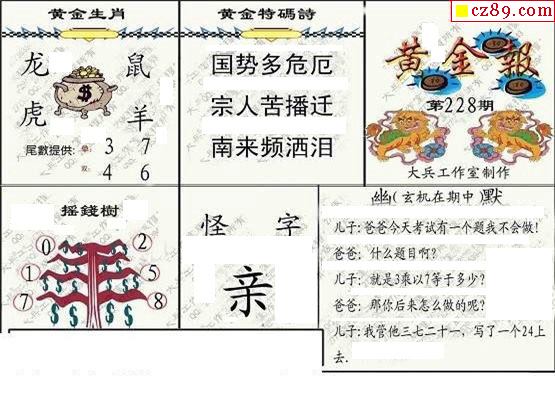 cz89.com
黄金生肖
龙 鼠
虎 羊
$
尾數提供: 單: 3 7
双: 4 6
黄金特碼詩
国势多危厄
宗人苦播迁
南来频洒泪
黄金報
第228期
大兵工作室制作
摇錢樹
0 2
1 5
7 8
怪 字
亲
幽(玄机在期中)默
儿子:爸爸今天考试有一个题我不会做!
爸爸: 什么题目啊?
儿子: 就是3乘以7等于多少?
爸爸: 那你后来怎么做的呢?
儿子:我管他三七二十一, 写了一个24上
去.